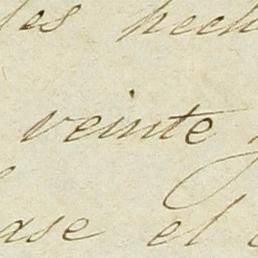 les hech
veinte y
ase el